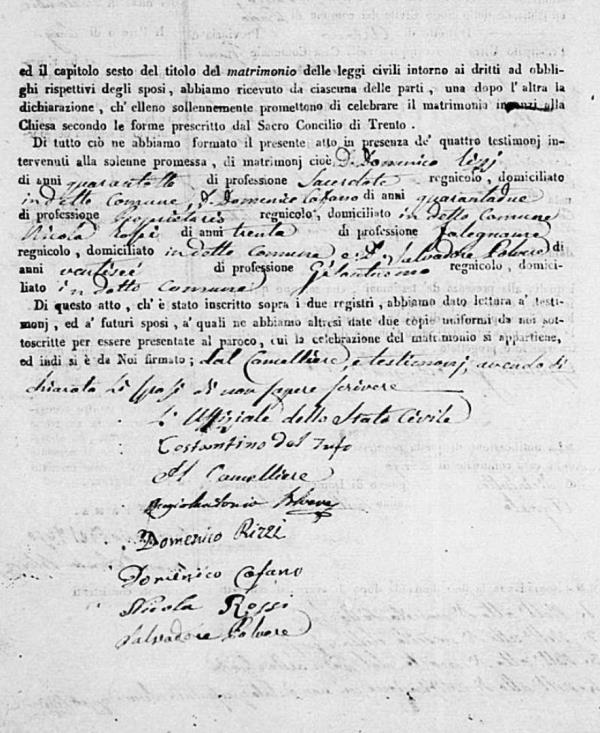 ed il capitolo sesto del titolo del matrimonio delle leggi civili intorno ai dritti ad obbli-
ghi rispettivi degli sposi, abbiamo ricevuto da ciascuna delle parti, una dopo l'altra la
dichiarazione, ch'elleno sollennemente promettono di celebrare il matrimonio innanzi alla
Chiesa secondo le forme prescritto dal Sacro Concilio di Trento.
Di tutto ciò ne abbiamo formato il presente atto in presenza de' quattro testimonj in-
tervenuti alla solenne promessa, di matrimonj cioè D. Domenico Rizzi
di anni quarantotto di professione Sacerdote regnicolo, domiciliato
in detto Comune, D. Domenico Cofano di anni quarantadue
di professione Proprietario regnicolo, domiciliato in detto Comune
Nicola Rossi di anni trenta di professione Falegname
regnicolo, domiciliato in detto Comune e D. Salvadore Polvere di
anni ventisei di professione Gelantuomo regnicolo, domici-
liato in detto Comune
Di questo atto, ch'è stato inscritto sopra i due registri, abbiamo dato lettura a' testi-
monj, ed a' futuri sposi, a' quali ne abbiamo altresì date due copie uniformi da noi sot-
toscritte per essere presentate al paroco, cui la celebrazione del matrimonio si appartiene,
ed indi si è da Noi firmato; dal Cancelliere, e testimonj, avendo di
chiarato li sposi di non sapere scrivere
L'Uffiziale dello Stato Civile
Costantino del Tufo
Il Cancelliere
Domenico Rizzi
Domenico Cofano
Nicola Rossi
Salvadore Polvere